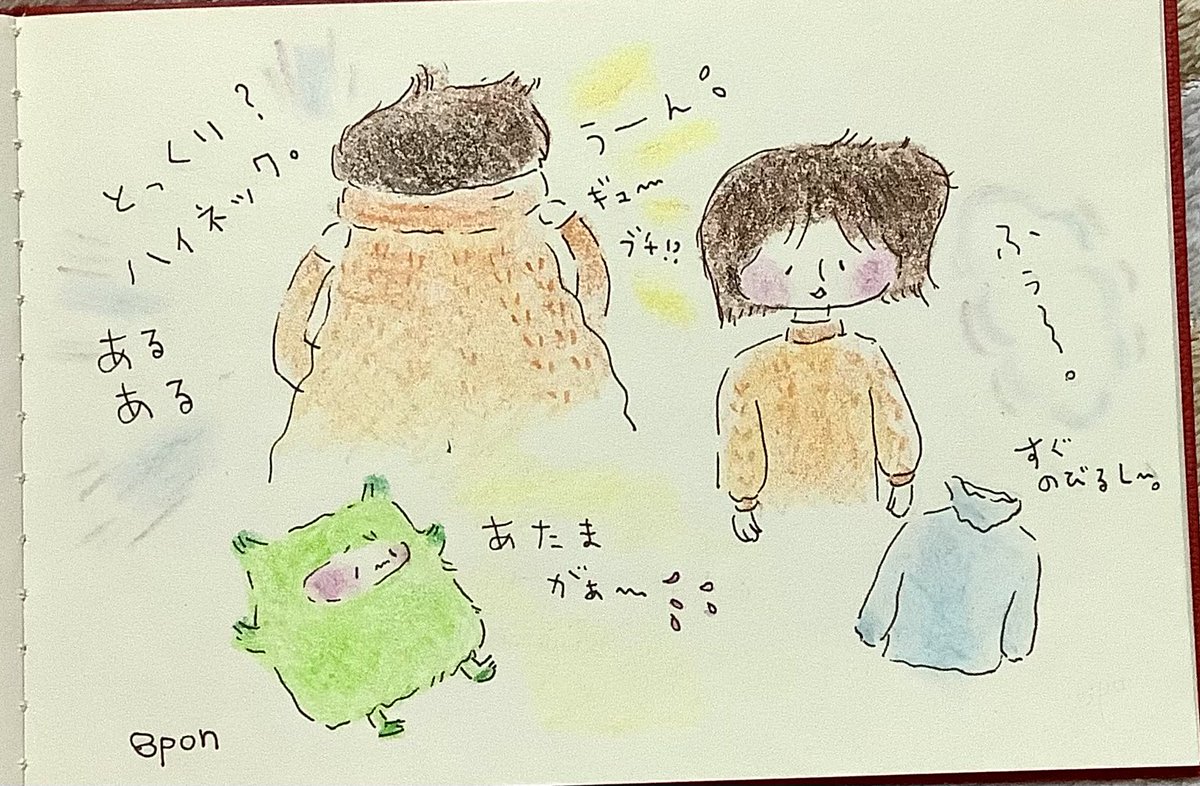 とっくり?
ハイネック。
あるある
うーん。
ギュ〜
ブチ!?
ふぅ〜。
すぐ
のびるし〜。
あたま
がぁ〜
8pon